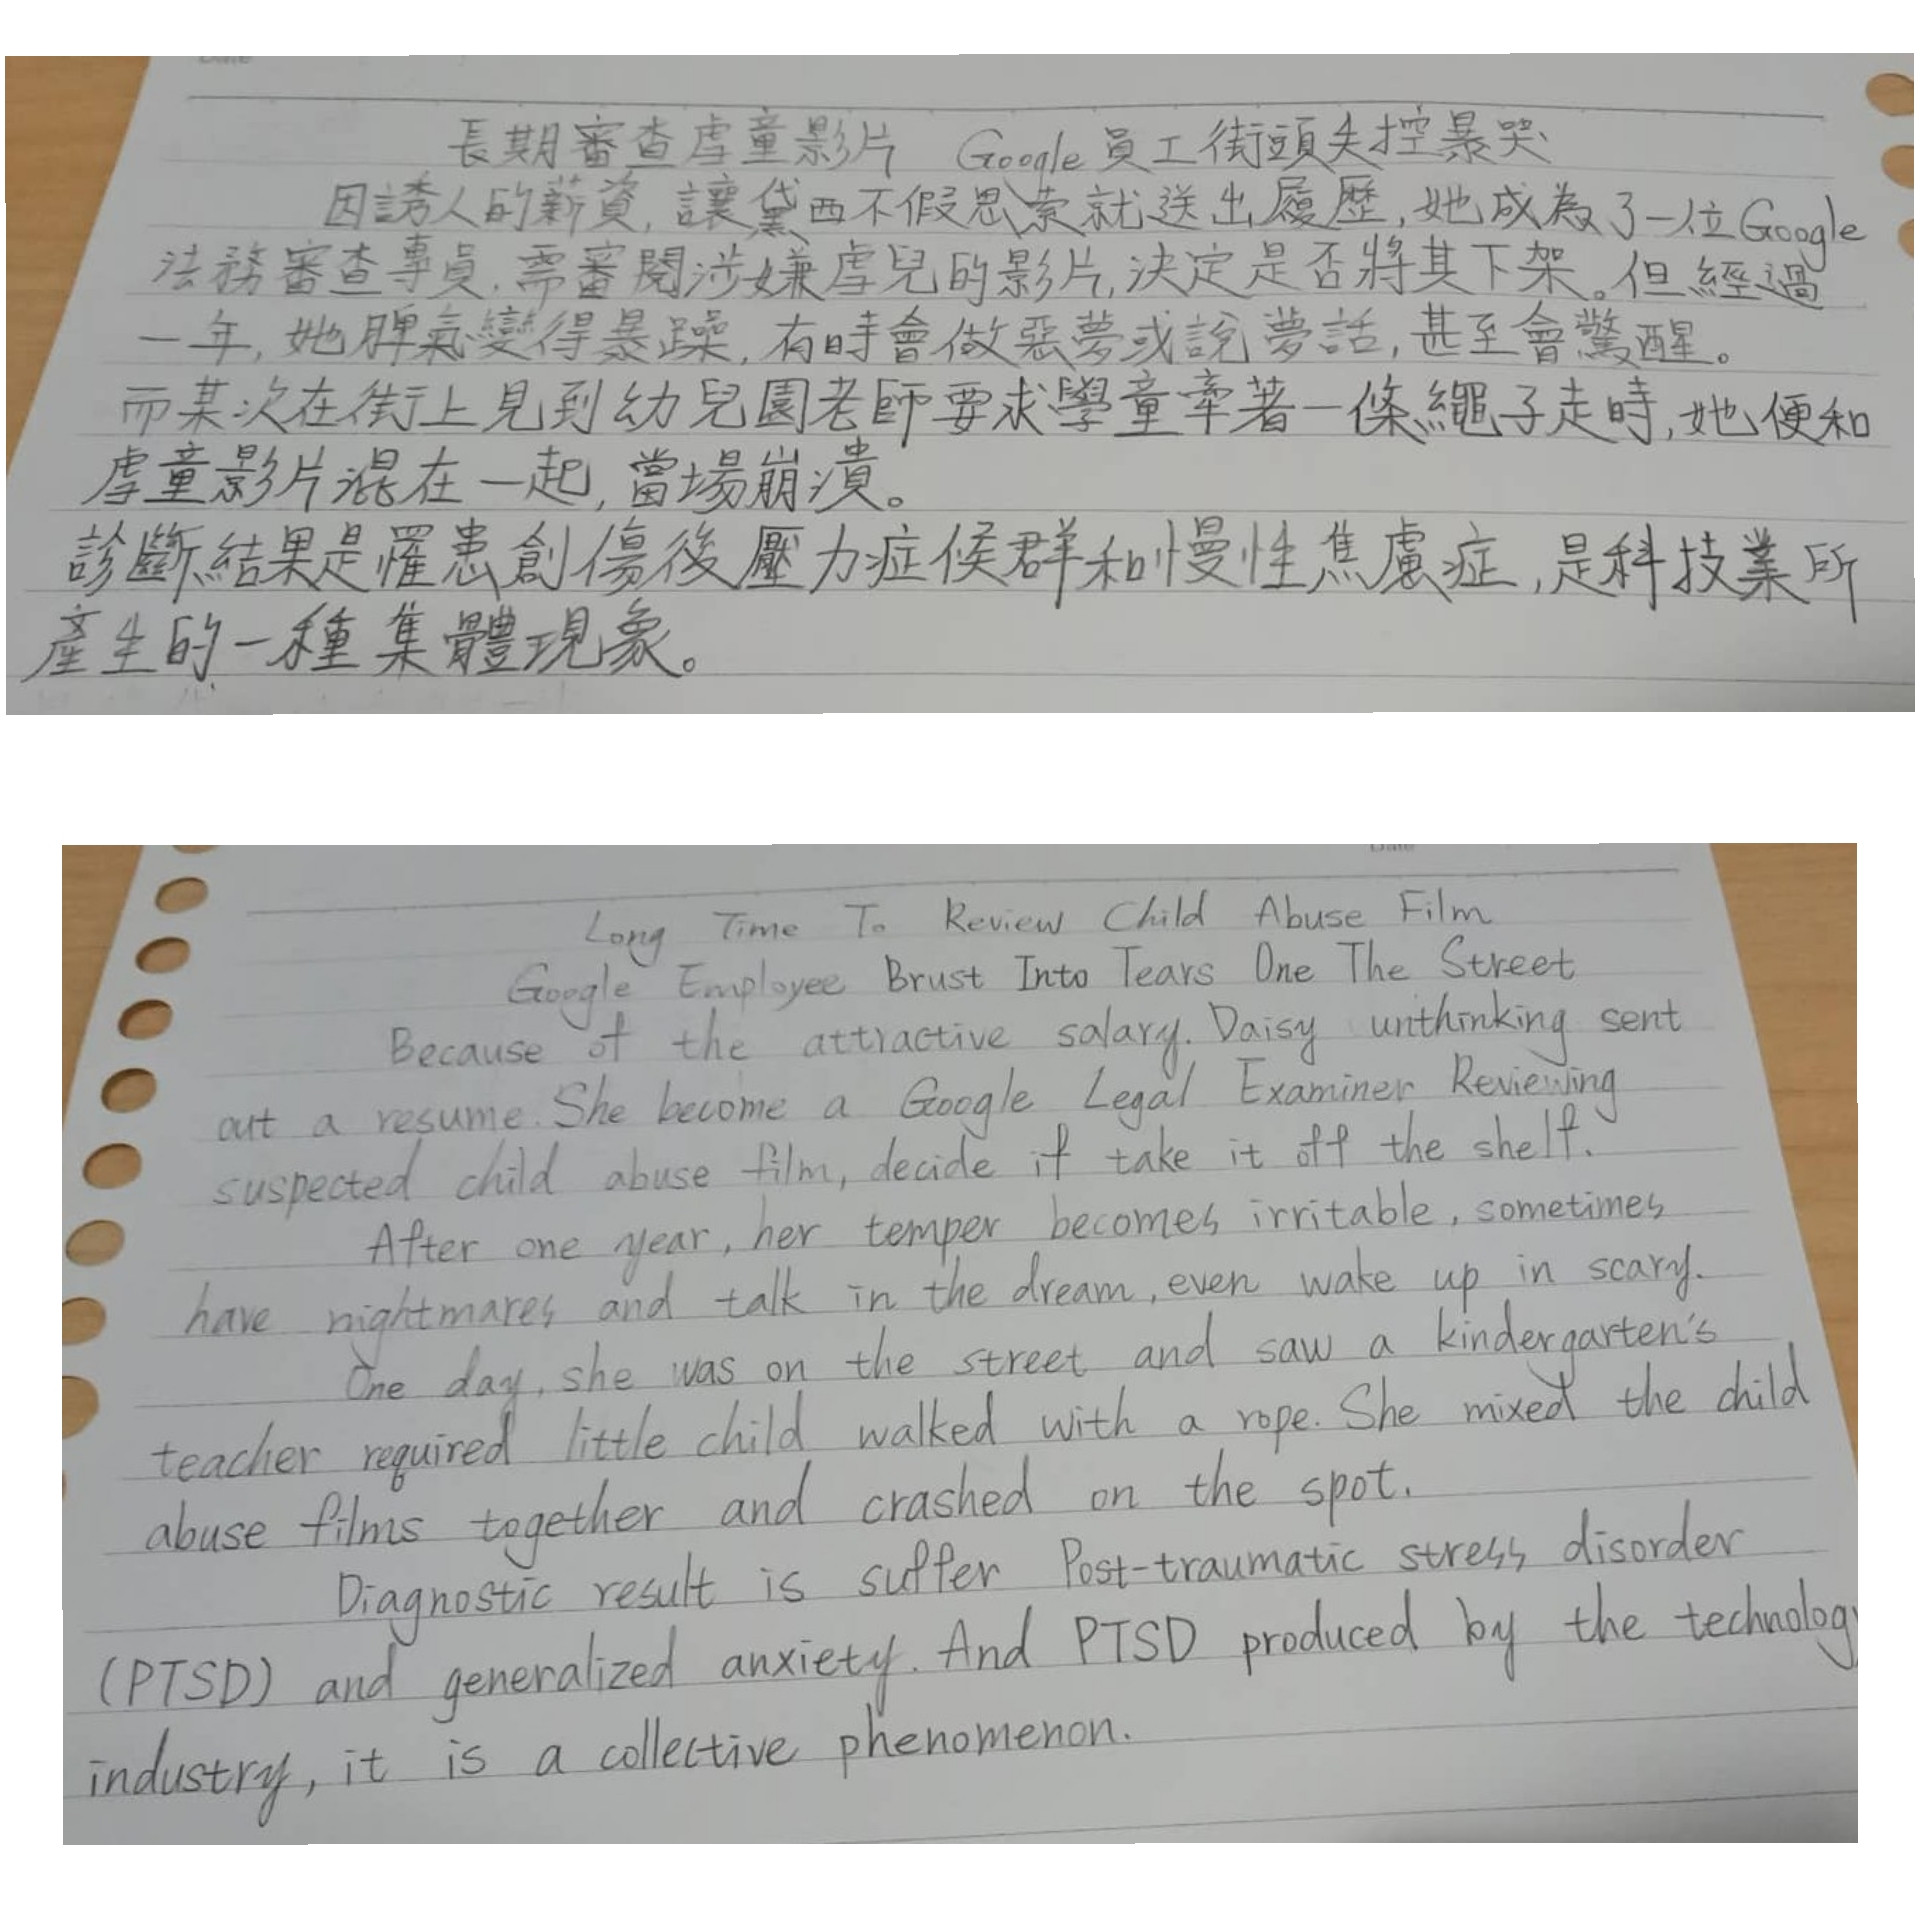 長期審查虐童影片 Google員工街頭失控暴哭
因誘人的薪資,讓黛西不假思索就送出履歷,她成為了一位Google
法務審查專員,需審閱涉嫌虐兒的影片,決定是否將其下架。但經過
一年,她脾氣變得暴躁,有時會做惡夢或說夢話,甚至會驚醒。
而某次在街上見到幼兒園老師要求學童牽著一條繩子走時,她便和
虐童影片混在一起,當場崩潰。
診斷結果是罹患創傷後壓力症候群和慢性焦慮症,是科技業所
產生的一種集體現象。
Long Time To Review Child Abuse Film
Google Employee Brust Into Tears One The Street
Because of the attractive salary. Daisy unthinking sent
out a resume. She become a Google Legal Examiner Reviewing
suspected child abuse film, decide if take it off the shelf.
After one year, her temper becomes irritable, sometimes
have nightmares and talk in the dream, even wake up in scary.
One day, she was on the street and saw a kindergarten's
teacher required little child walked with a rope. She mixed the child
abuse films together and crashed on the spot.
Diagnostic result is suffer Post-traumatic stress disorder
(PTSD) and generalized anxiety. And PTSD produced by the technology
industry, it is a collective phenomenon.